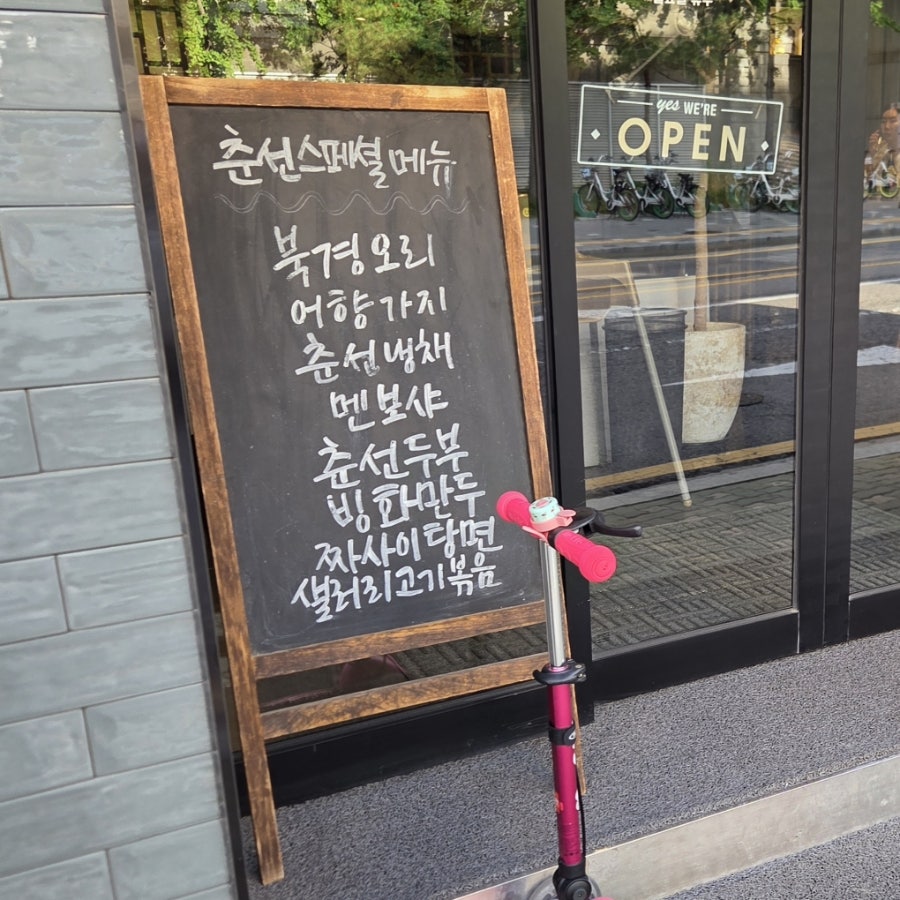 춘선스페셜 메뉴
북경오리
어향가지
춘선냉채
멘보샤
춘선두부
빙화만두
짜사이탕면
샐러리고기볶음
yes WE'RE
OPEN